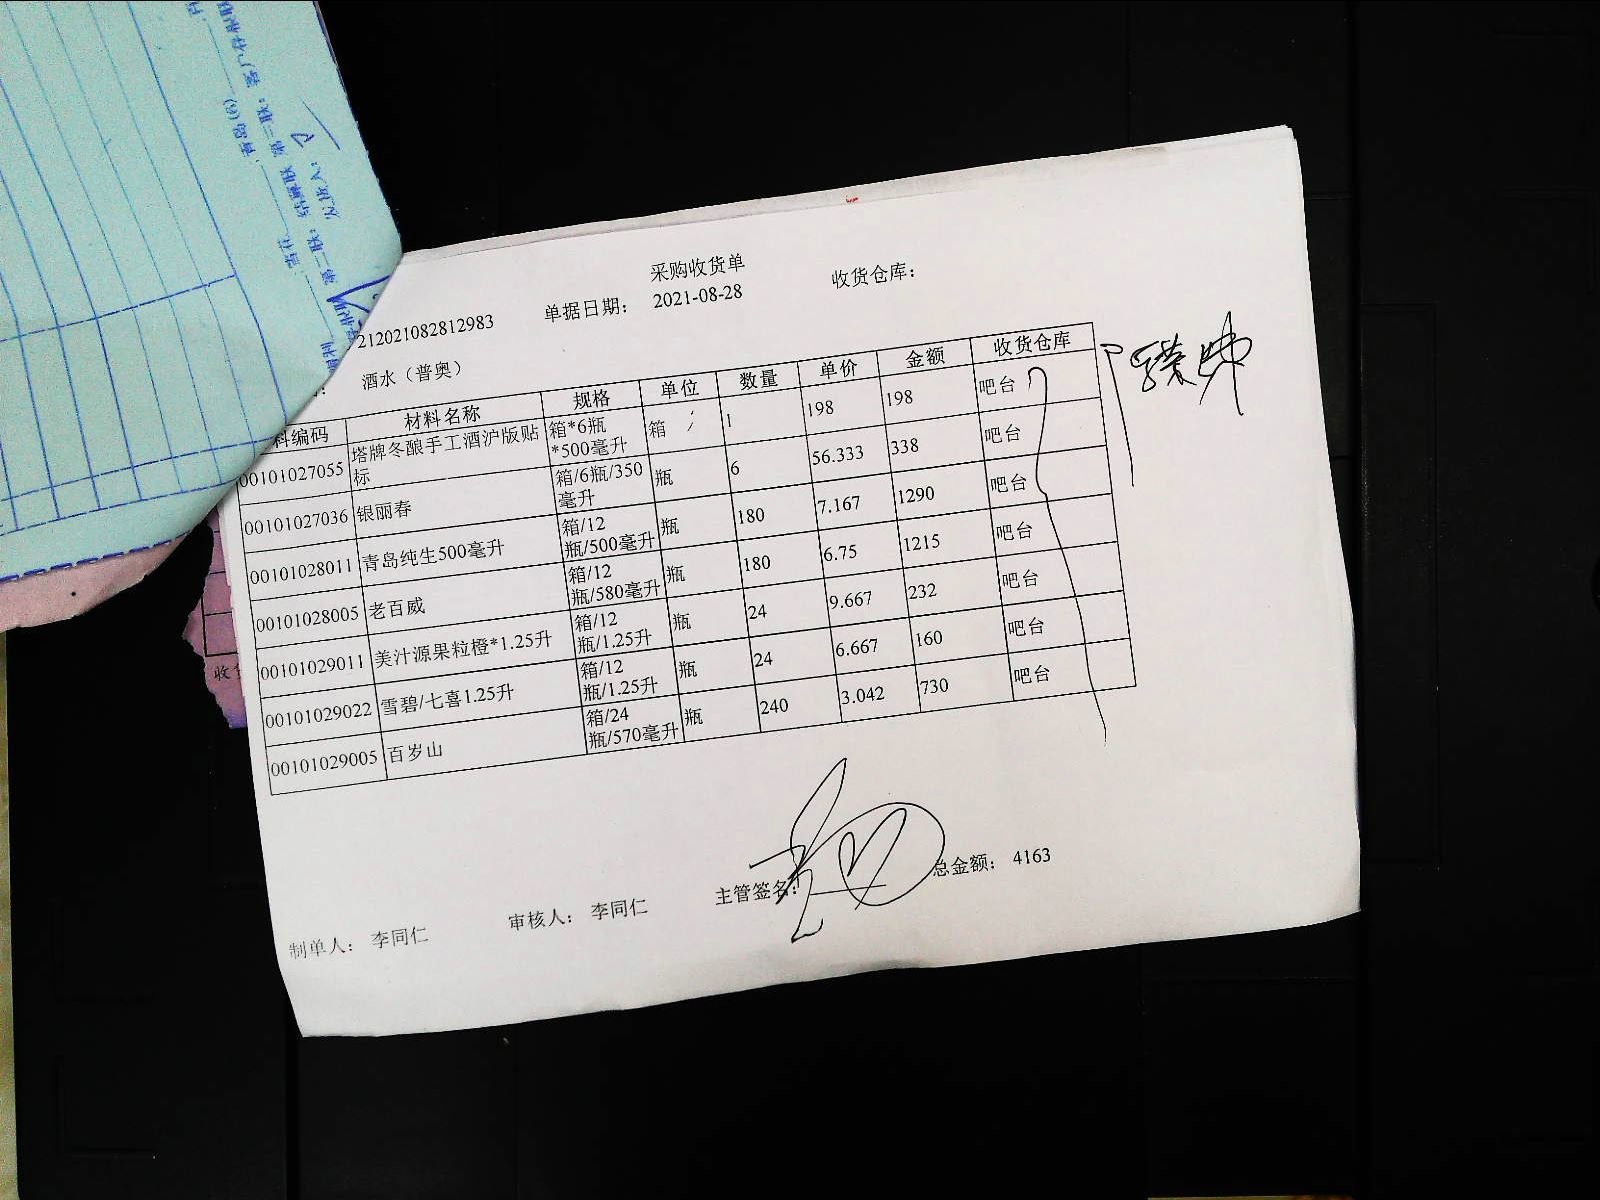 采购收货单
212021082812983 单据日期： 2021-08-28 收货仓库：
酒水（普奥）
料编码 材料名称 规格 单位 数量 单价 金额 收货仓库
00101027055 塔牌冬酿手工酒沪版贴标 箱*6瓶*500毫升 箱 1 198 198 吧台
00101027036 银丽春 箱/6瓶/350毫升 瓶 6 56.333 338 吧台
00101028011 青岛纯生500毫升 箱/12瓶/500毫升 瓶 180 7.167 1290 吧台
00101028005 老百威 箱/12瓶/580毫升 瓶 180 6.75 1215 吧台
00101029011 美汁源果粒橙*1.25升 箱/12瓶/1.25升 瓶 24 9.667 232 吧台
00101029022 雪碧/七喜1.25升 箱/12瓶/1.25升 瓶 24 6.667 160 吧台
00101029005 百岁山 箱/24瓶/570毫升 瓶 240 3.042 730 吧台
制单人： 李同仁 审核人： 李同仁 主管签名： 总金额： 4163
发货人：